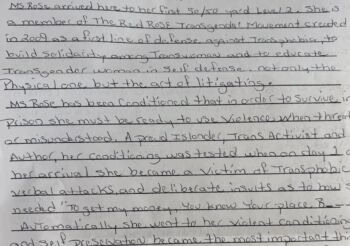 Ms Rose arrived here to her first 50/50 yard Level 2. She is
a member of The Red Rose Transgender Movement created
in 2009 as a first line of defense against Transphobia, to
build solidarity among Transwoman and to educate
Transgender woman in self defense. not only the
Physical one, but the act of litigating.
Ms Rose has been conditioned that in order to survive in
Prison she must be ready to use violence. When threat
or misunderstood. A proud Islander, Trans Activist and
Author, her conditioning was tested when on day 1 of
her arrival she became a victim of Transphobic
verbal attacks, and deliberate insults as to how s
needed "To get my money, You know Your place, B
Automatically she went to her violent conditioning
and self preservation became the most important thi